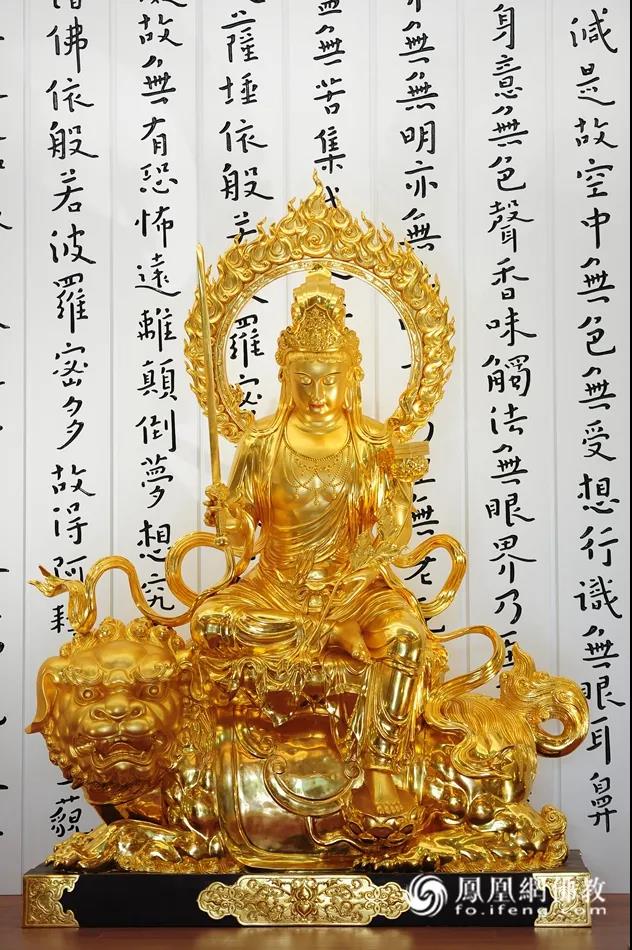 減是故空中無色無受想行識無眼耳鼻
身意無色聲香味觸法無眼界乃至
無無明亦無 無老
盡無苦集
薩埵依般若 羅密
故無有恐怖遠離顛倒夢想究
諸佛依般若波羅密多故得阿耨 藐
鳳凰網佛教
fo.ifeng.com